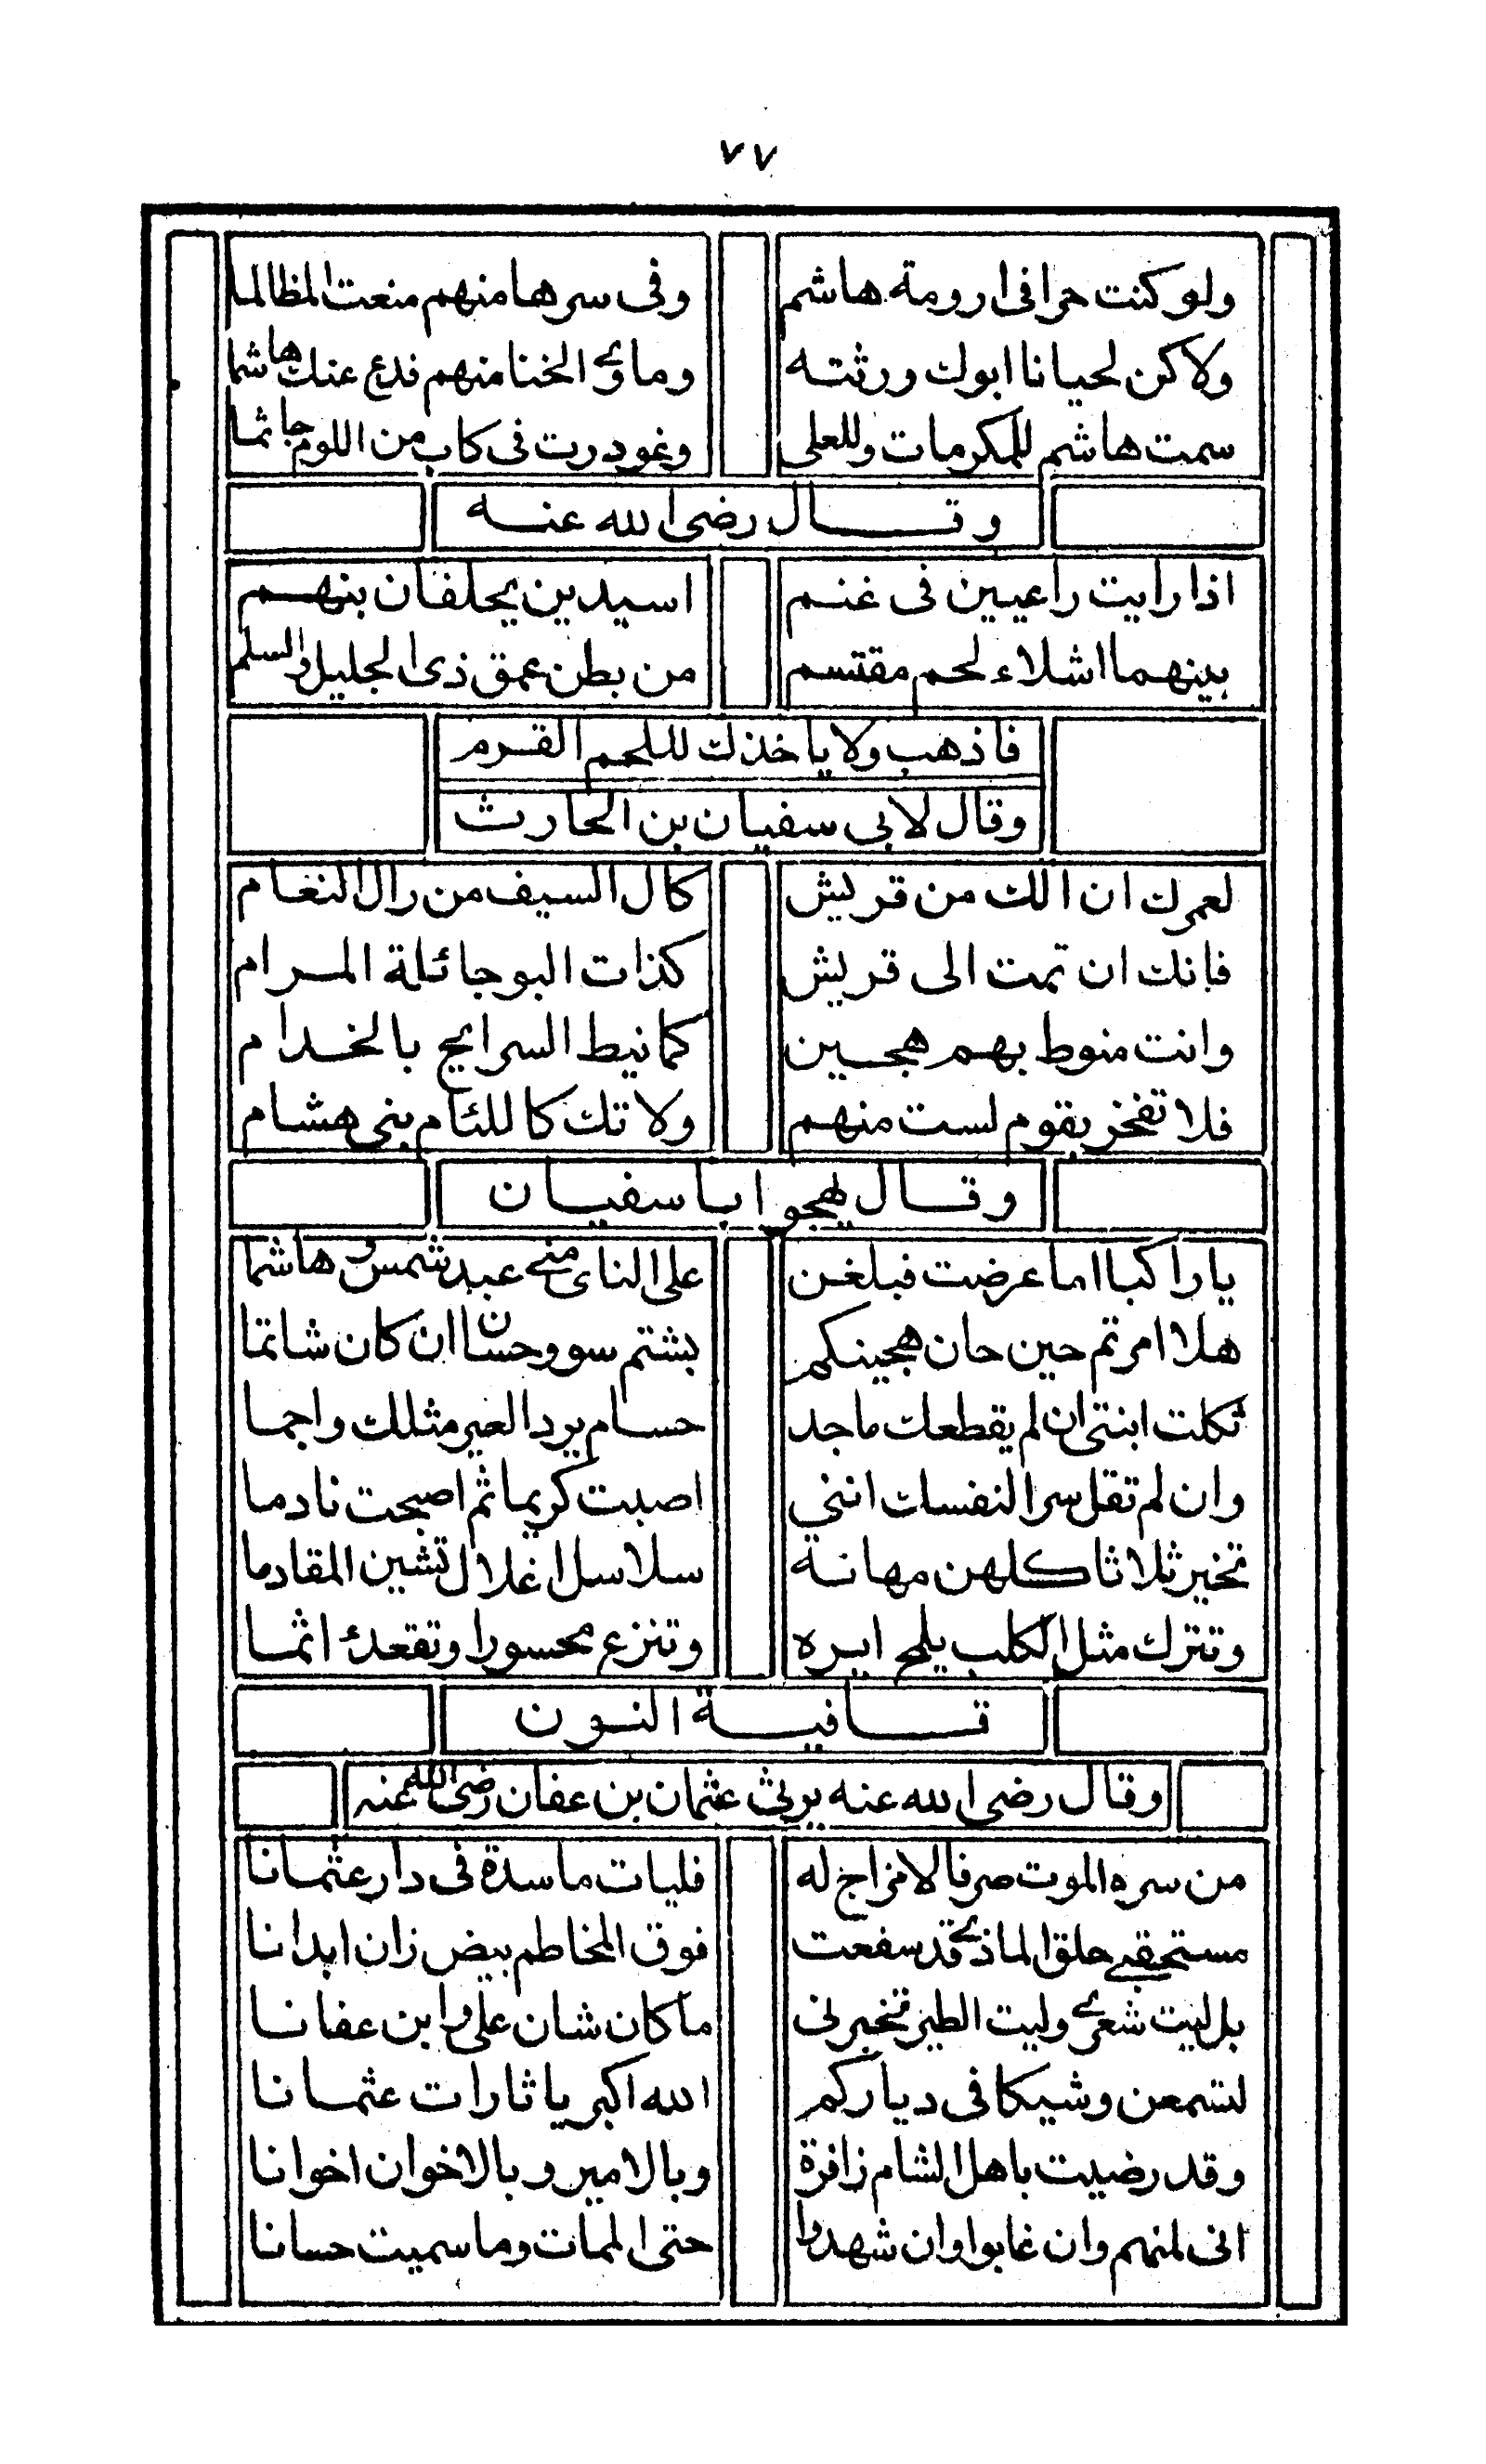 ٧٧
ولو كنت حرا فى ارومة هاشم وفى سرها منهم منعت المظالما
ولاكن لحيانا ابوك ورثته وماوى الخنا منهم فدع عنك هاشما
سمت هاشم للمكرمات وللعلى وغودرت فى كاب من اللوم جاثما
وقال رضى الله عنه
اذا رايت راعيين فى غنم اسيدين يحلفان بنهم
بينهما اشلاء لحم مقتسم من بطن عمق ذى الجليل والسلم
فاذهب ولا ياخذك للحم القرم
وقال لابى سفيان بن الحارث
لعمرك ان الك من قريش كال السيف من رال النعام
فانك ان تمت الى قريش كذات البو جائلة المرام
وانت منوط بهم هجين كما نيط السرايح بالخدام
فلا تفخر بقوم لست منهم ولا تك كاللئام بنى هشام
وقال يهجو ابا سفيان
يا راكبا اما عرضت فبلغن على الناى منى عبد شمس وهاشما
هلا امرتم حين حان هجينكم بشتم سو وحسا ان كان شاتما
ثكلت ابنتى ان لم يقطعك ماجد حسام يرد العير مثلك واجما
وان لم تقل سرا لنفسك اننى اصبت كريما ثم اصبحت نادما
تخير ثلاثا كلهن مهانة سلاسل اغلال تشين المقادما
وتترك مثل الكلب يلحم ايره وتنزع محسورا وتقعد اثما
قافية النون
وقال رضى الله عنه يرثى عثمان بن عفان رضى الله عنه
من سره الموت صرفا لا مزاج له فليات ماسدة فى دار عثمانا
مستحقبى حلق الماذى قد سفعت فوق المخاطم بيض زان ابدانا
بل ليت شعرى وليت الطير تخبرنى ما كان شان على وابن عفانا
لتسمعن وشيكا فى دياركم الله اكبر يا ثارات عثمانا
وقد رضيت باهل الشام زافرة وبالامير وبالاخوان اخوانا
انى لمنهم وان غابوا وان شهدوا حتى الممات وما سميت حسانا